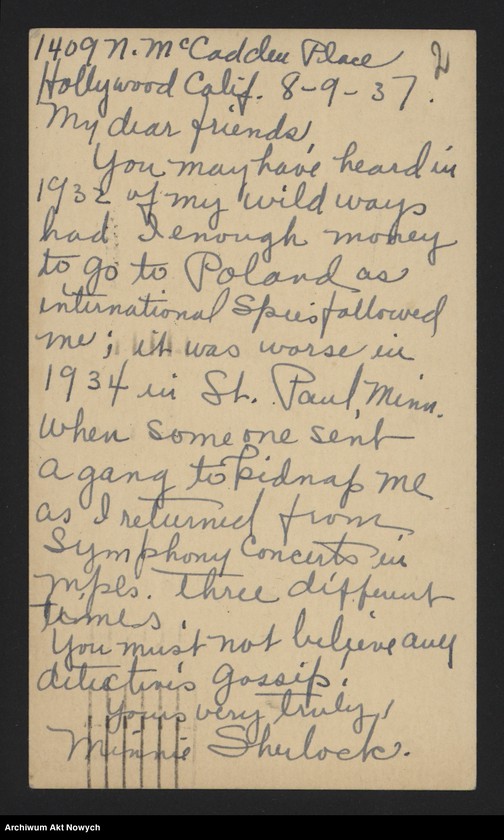 1409 N. McCadden Place
2
Hollywood Calif. 8-9-37.
My dear friends
You may have heard in
1932 of my wild ways
had I enough money
to go to Poland as
international Spies followed
me; it was worse in
1934 in St. Paul, Minn.
when someone sent
a gang to kidnap me
as I returned from
Symphony Concerts in
Mpls. three different
times.
You must not believe any
detective's gossip.
Yours very truly,
Minnie Sherlock.
Archiwum Akt Nowych